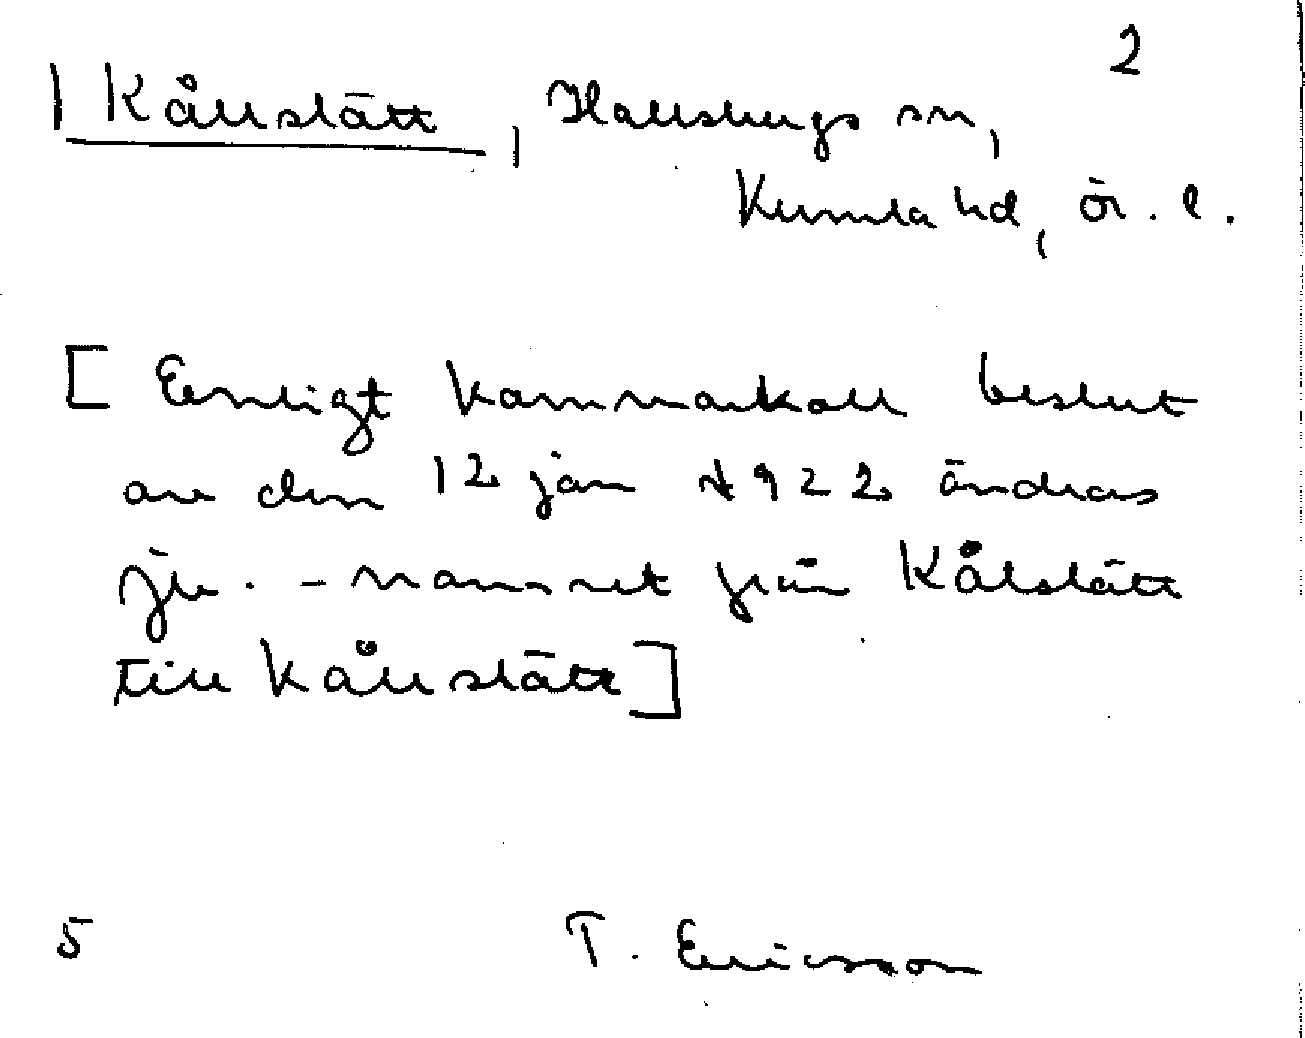 2
| Kållstätt, Hallsbergs sn,
Kumla hd, Ör. l.
[ Enligt kammarkoll beslut
av den 12 jan 1922 ändras
jb. - namnet från Kålstätt
till Kållstätt ]
5 T. Ericsson